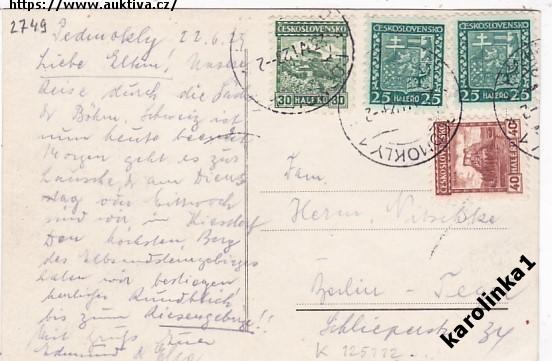 https://www.auktiva.cz/
2749
Podmokly 22.6.
Liebe Eltern! Unsere
Reise durch die
& Böhm. Schweiz ist
nun heute
Morgen geht es zur
Lausche, & am Diens-
tag oder Mittwoch
sind wir in
Den höchsten Berg
des Elbsandsteingebirges
haben wir bestiegen
herrlicher Rundblick
bis zum Riesengebirge!!
Mit Gruß Euer
ČESKOSLOVENSKO
30 HALÉŘŮ 30
ČESKOSLOVENSKO
25 HALÉŘŮ 25
ČESKOSLOVENSKO
25 HALÉŘŮ 25
ČESKOSLOVENSKO
40 HALÉŘŮ 40
PODMOKLY 1
Fam.
Herm. Nitschke
Berlin - Tegel
Schlieperstr. 34
K 125122
karolinka1